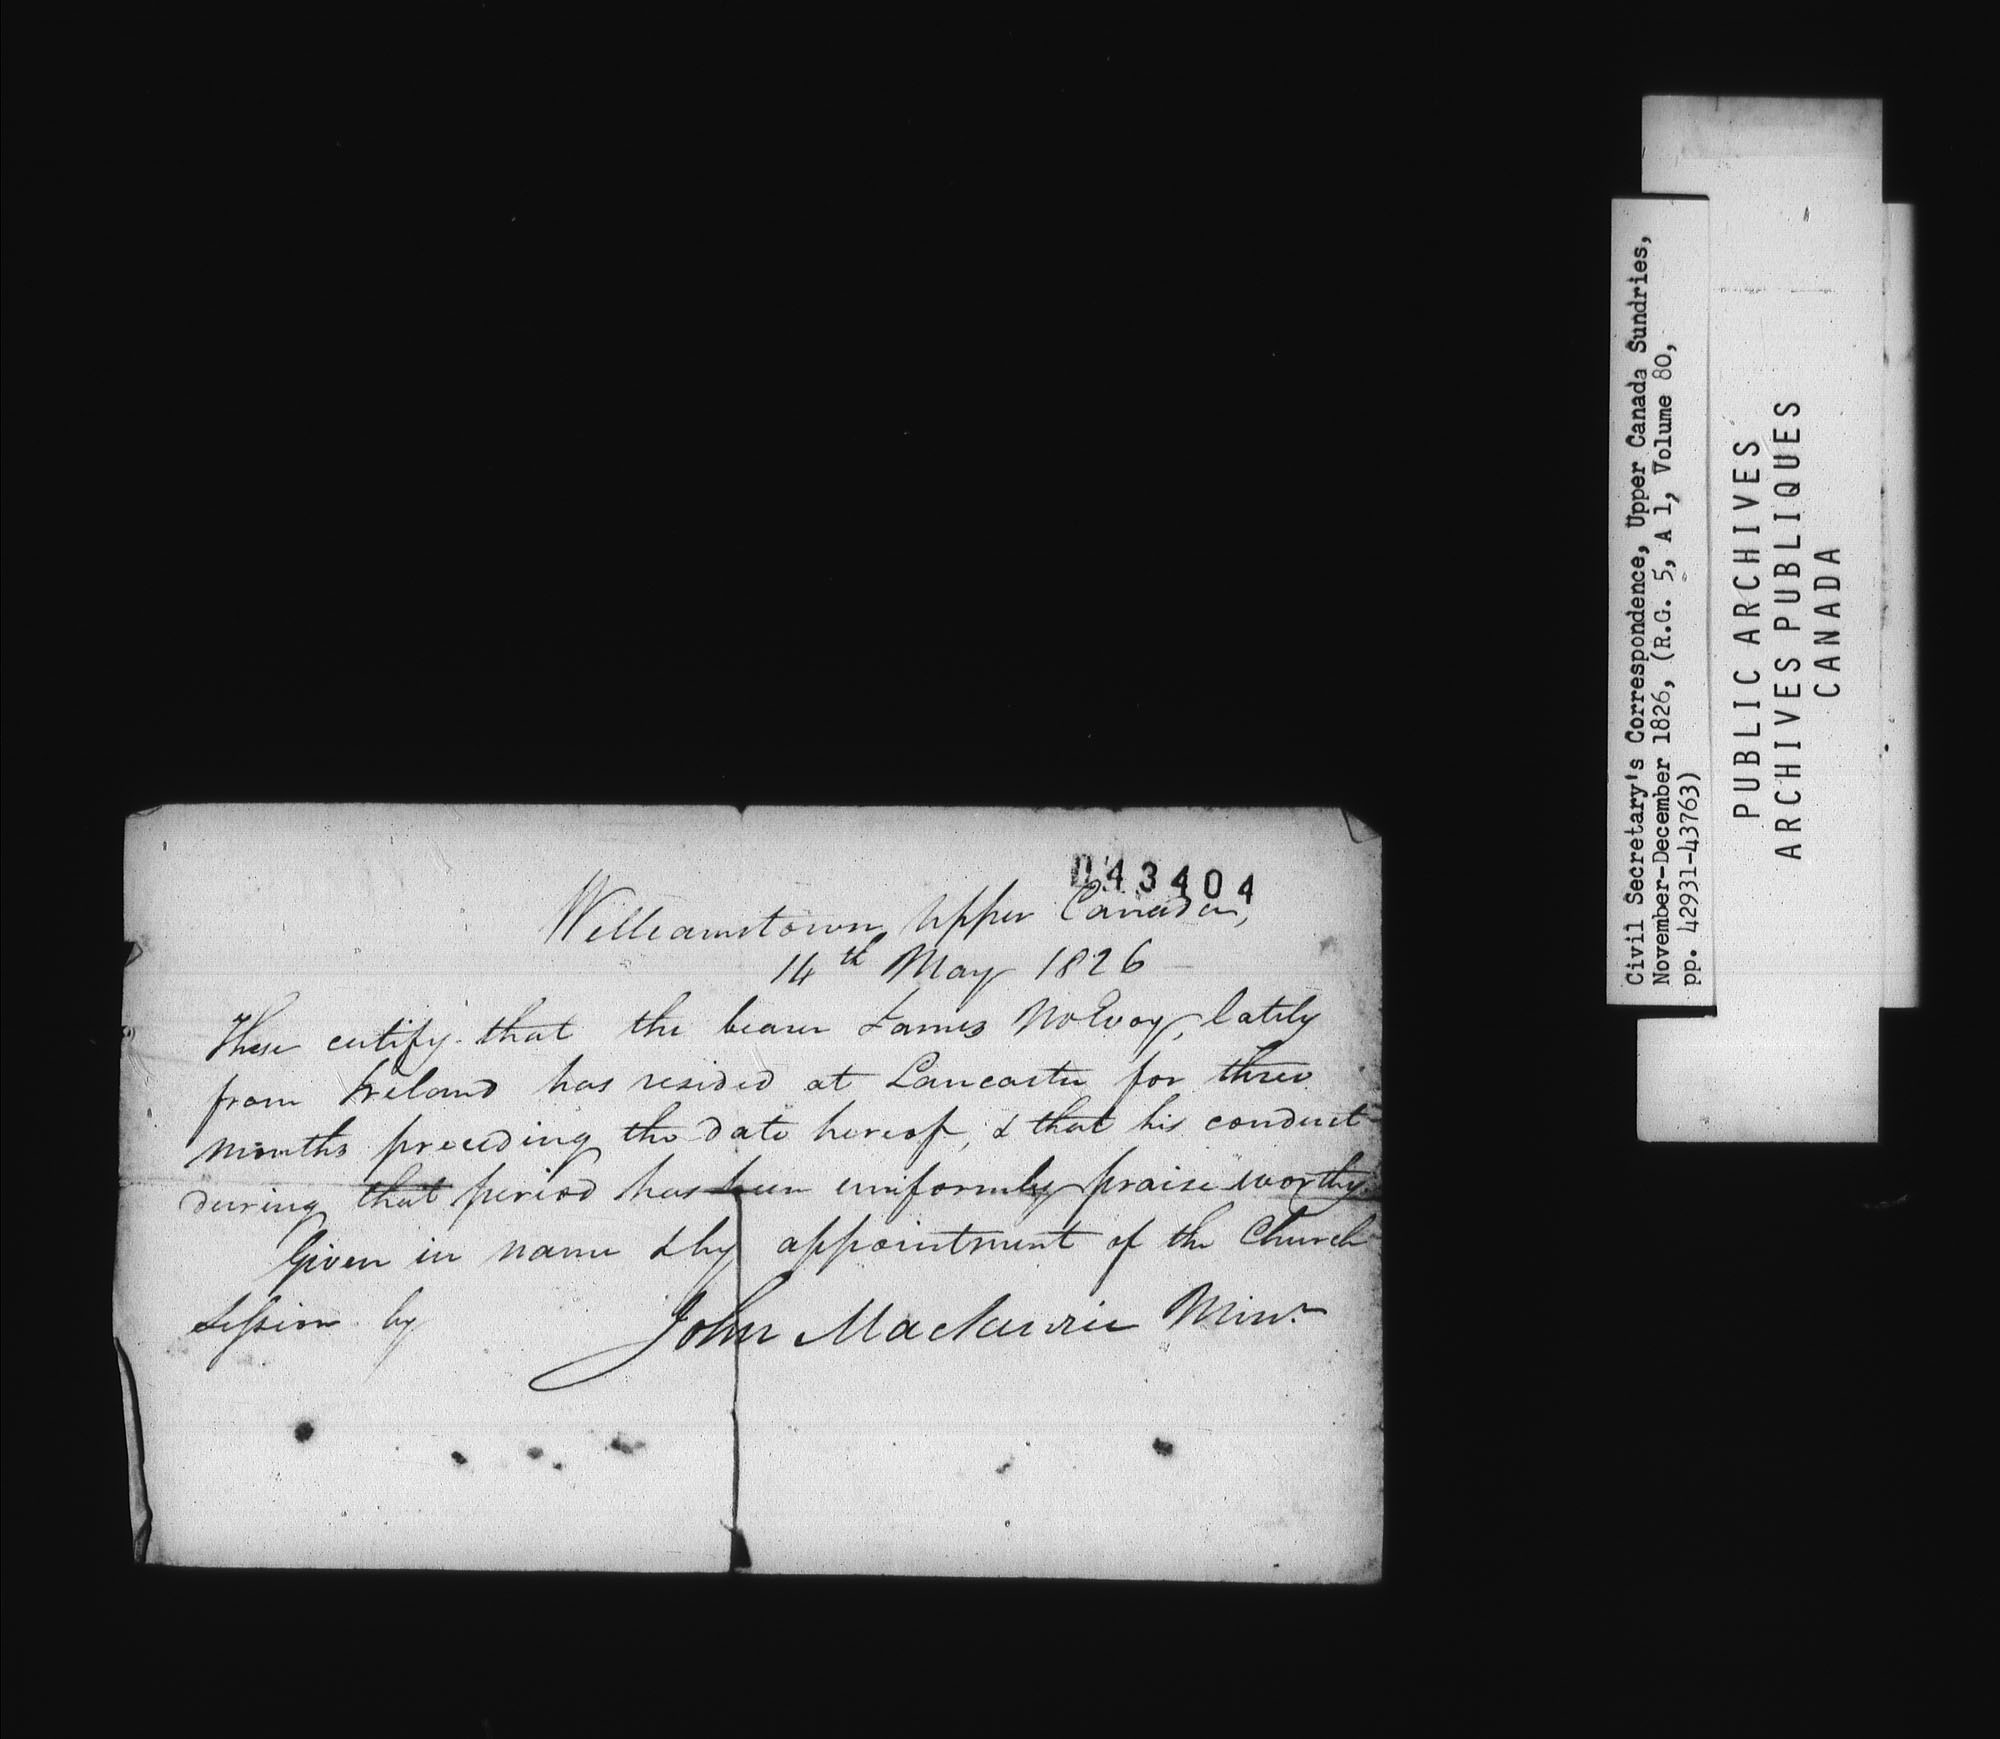 043404
Williamstown Upper Canada,
14th May 1826
These certify that the bearer James McEvoy, lately
from Ireland has resided at Lancaster for three
months preceeding the date hereof, & that his conduct
during that period has been uniformly praise worthy.
Given in name & by appointment of the Church
Session by John Mackenzie Minr.
Civil Secretary's Correspondence, Upper Canada Sundries,
November-December 1826, (R.G. 5, A 1, Volume 80,
pp. 42931-43763)
PUBLIC ARCHIVES
ARCHIVES PUBLIQUES
CANADA